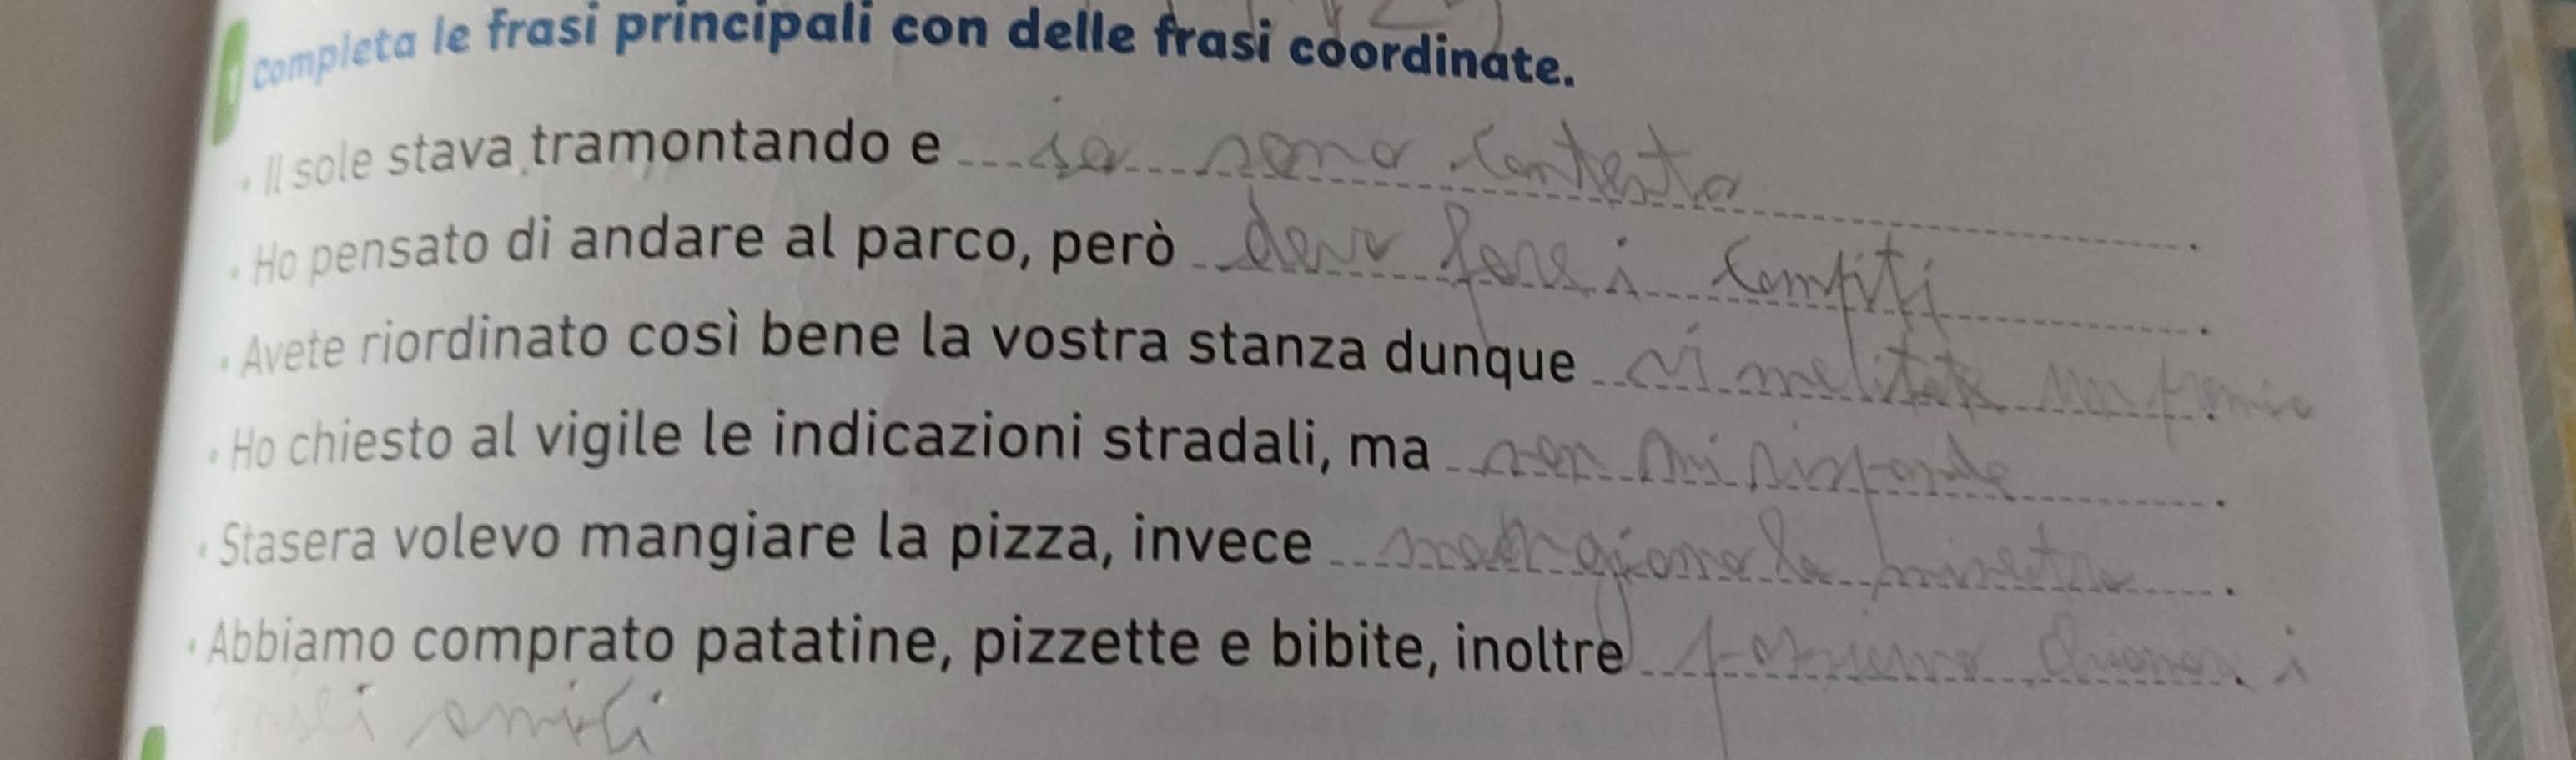 1 Completa le frasi principali con delle frasi coordinate.
• Il sole stava tramontando e io sono contento.
• Ho pensato di andare al parco, però devo fare i compiti.
• Avete riordinato così bene la vostra stanza dunque vi meritate un premio.
• Ho chiesto al vigile le indicazioni stradali, ma non mi risponde.
• Stasera volevo mangiare la pizza, invece mangiamo la minestra.
• Abbiamo comprato patatine, pizzette e bibite, inoltre possiamo i
miei amici.